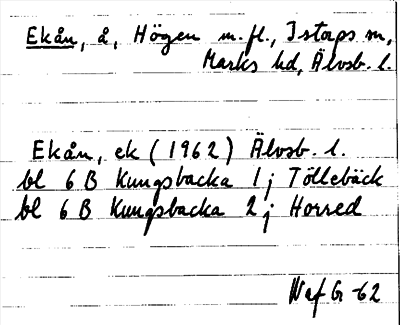 Ekån, å, Högen m. fl., Istorps sn,
Marks hd, Älvsb. l.
Ekån, ek (1962) Älvsb. l.
bl 6 B Kungsbacka 1 j Töllebäck
bl 6 B Kungsbacka 2 j Horred
NafG -62